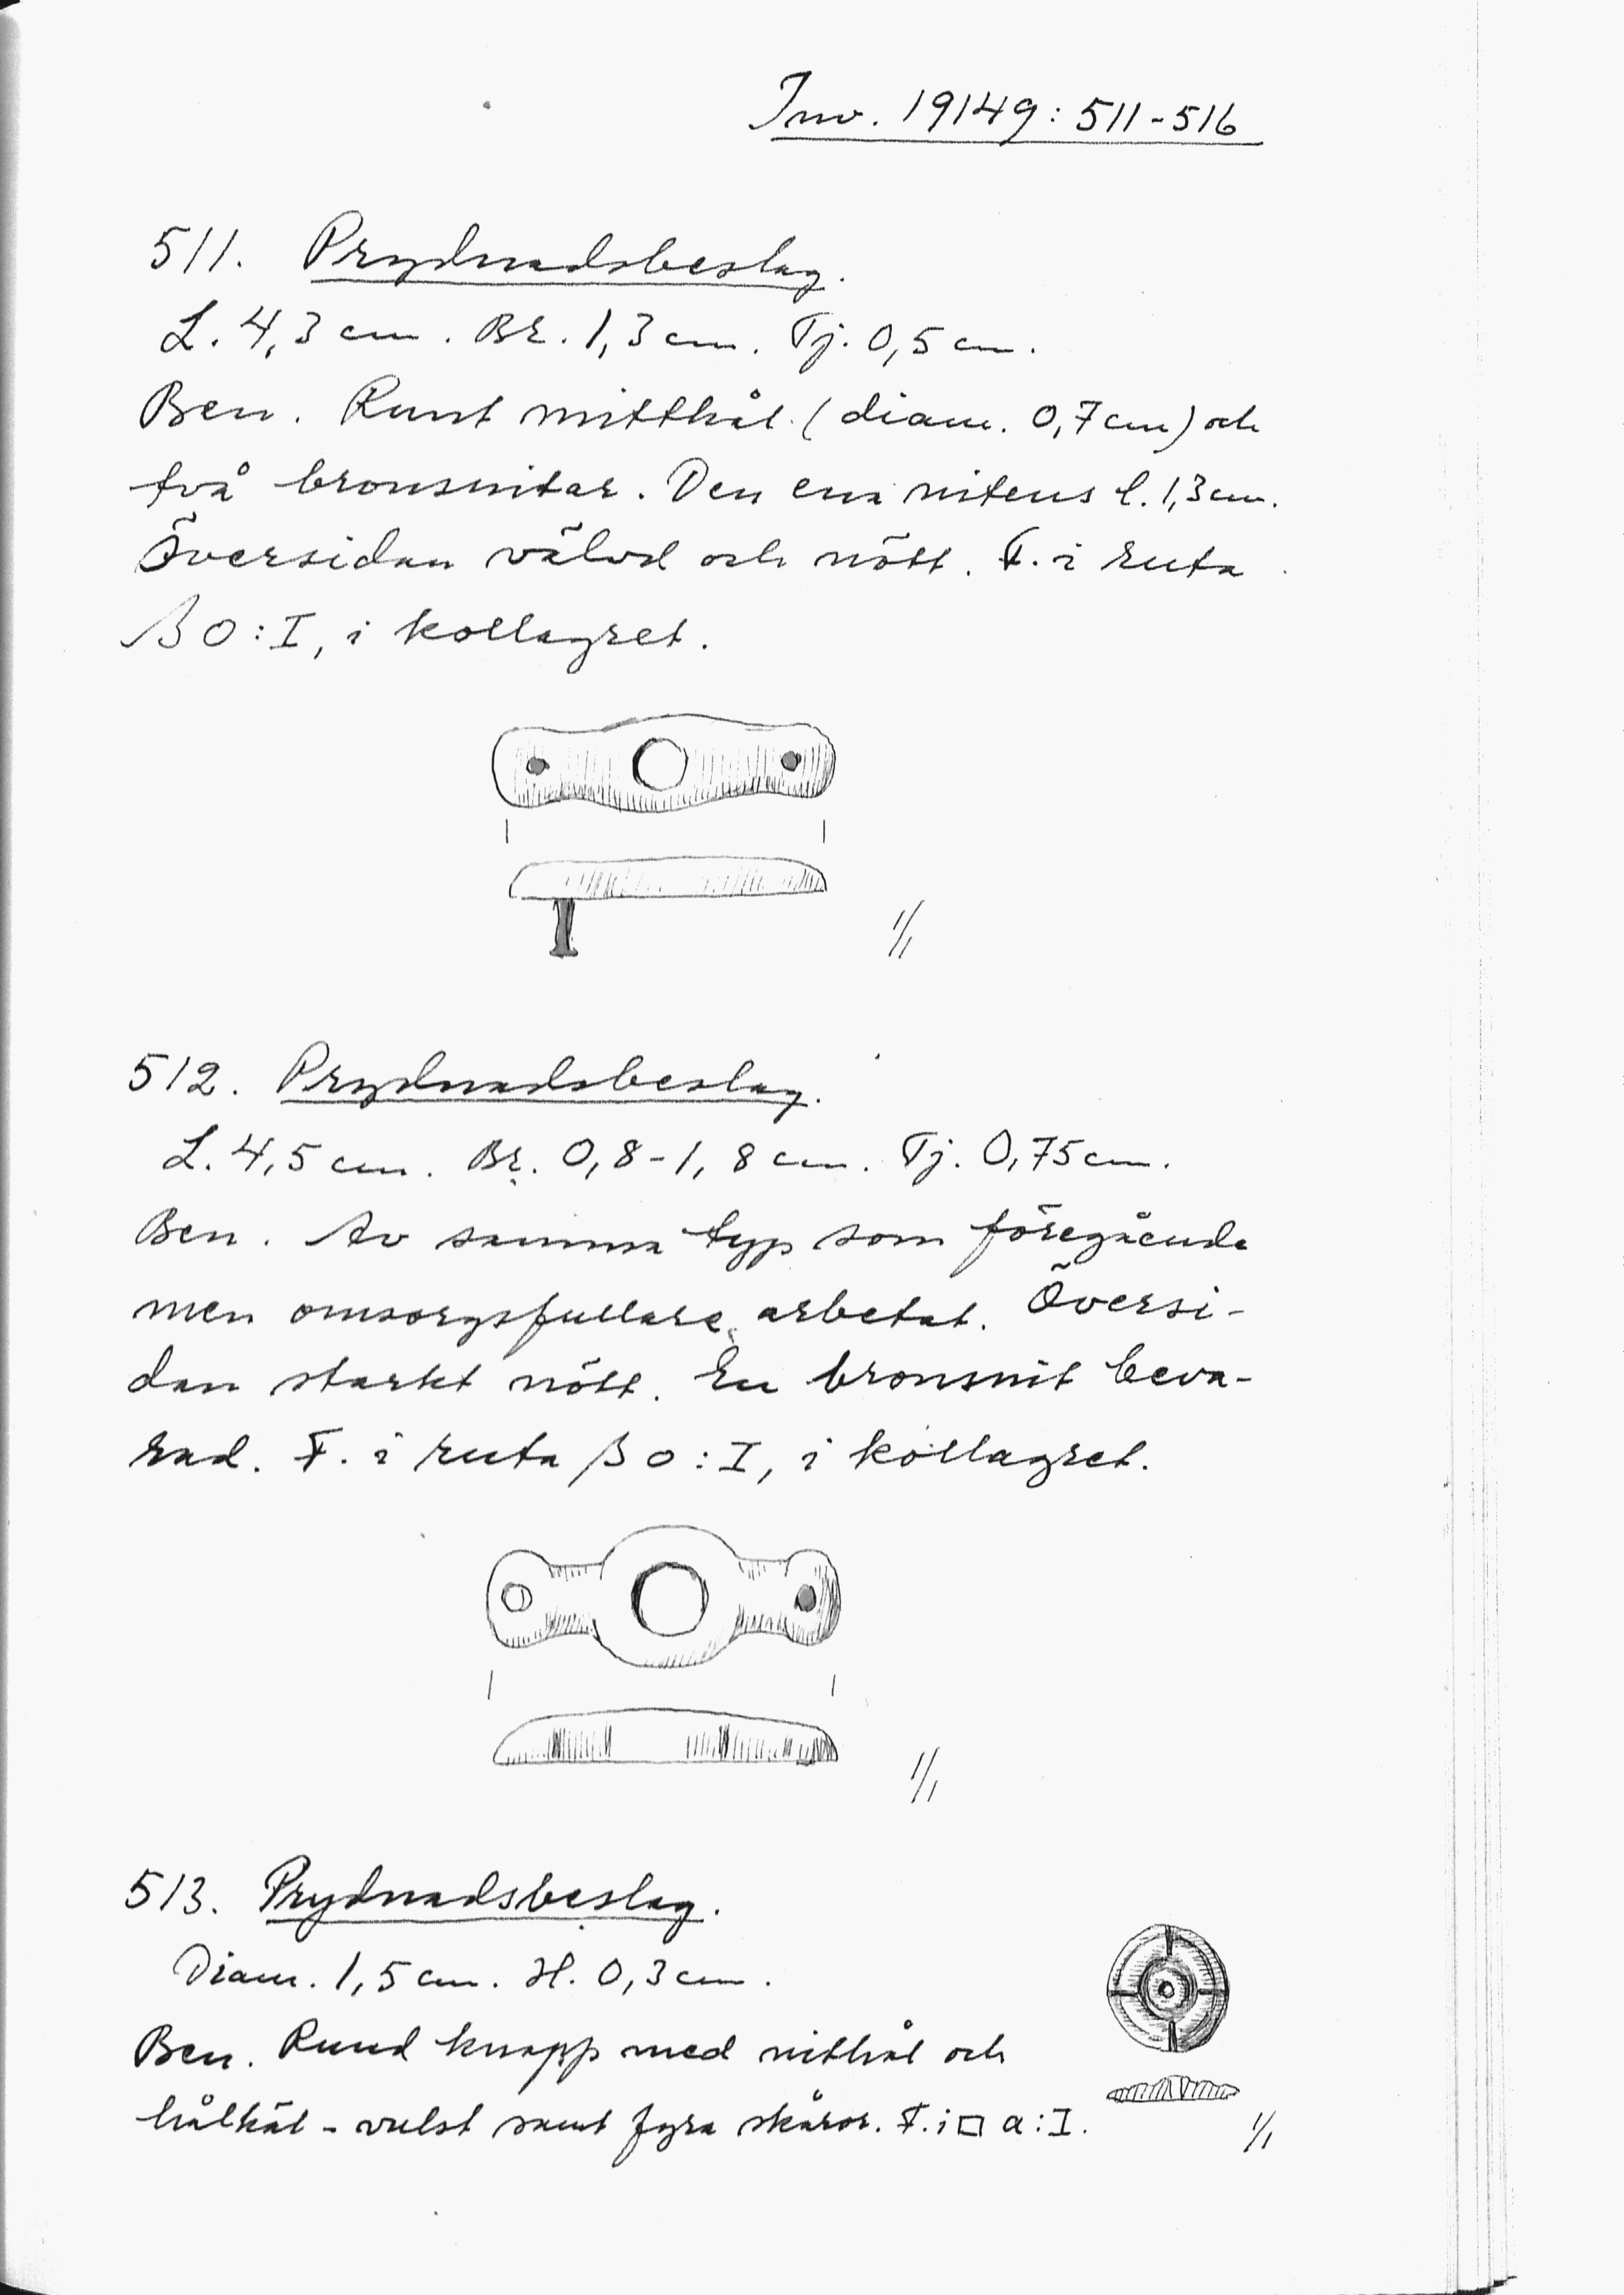 Inv. 19149:511-516
511. Prydnadsbeslag.
L. 4,3 cm. Br. 1,3 cm. Tj. 0,5 cm.
Ben. Runt mitthål (diam. 0,7 cm) och
två bronsnitar. Den ena nitens l. 1,3 cm.
Översidan välvd och nött. F. i ruta
β 0:I, i kollagret.
1/1
512. Prydnadsbeslag.
L. 4,5 cm. Br. 0,8-1,8 cm. Tj. 0,75 cm.
Ben. Av samma typ som föregående
men omsorgsfullare arbetat. Översi-
dan starkt nött. En bronsnit beva-
rad. F. i ruta β 0:I, i kollagret.
1/1
513. Prydnadsbeslag.
Diam. 1,5 cm. H. 0,3 cm.
Ben. Rund knapp med nithål och
hålkäl-vulst samt fyra skåror. F. i □ a:I.
1/1